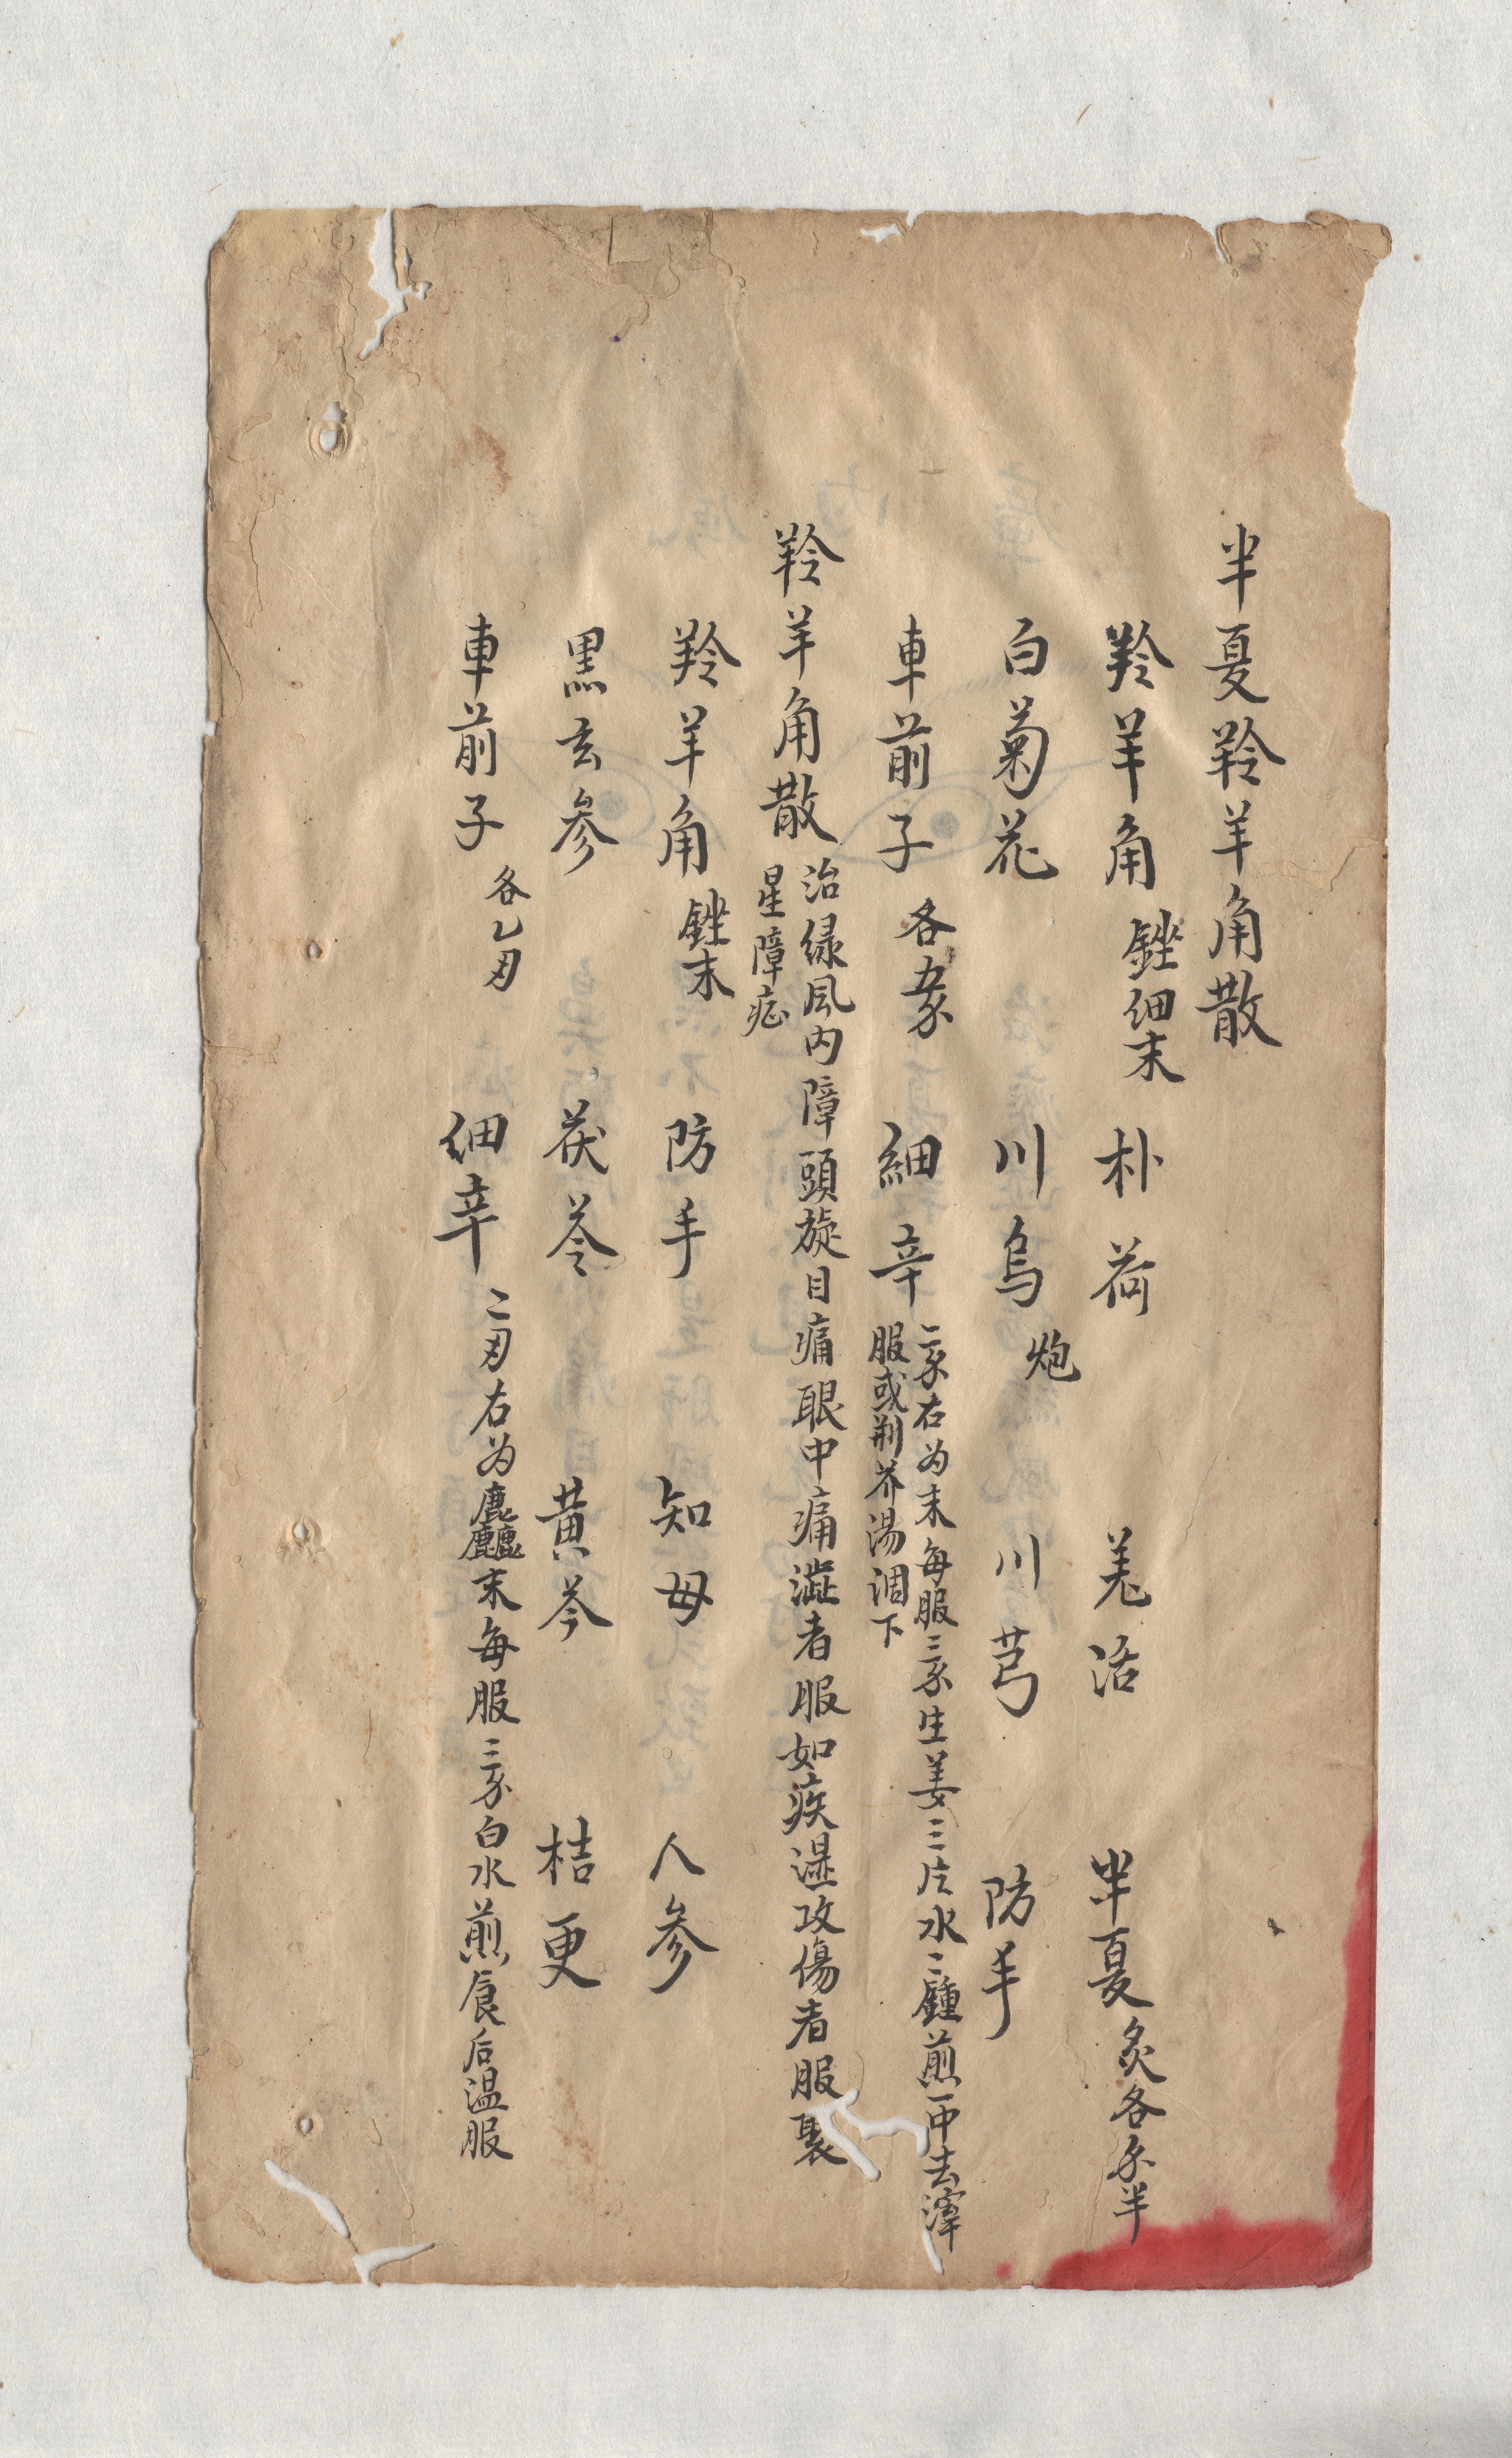 半夏羚羊角散
羚羊角 銼细末 朴荷 羗活 半夏 炙各 半
白菊花 川烏 炮 川芎 防手
車前子 各五 細辛 二 右为末每服三 生姜三片水二鍾煎一中去滓
服或荆芥湯调下
羚羊角散 治緑风内障頭旋目痛眼中痛澁者服如疾湿攻傷者服
星障症
羚羊角 銼末 防手 知母 人参
黒玄参 茯苓 黄芩 桔更
車前子 各乙刄 细辛 二刄右为麤末每服三 白水煎食后温服